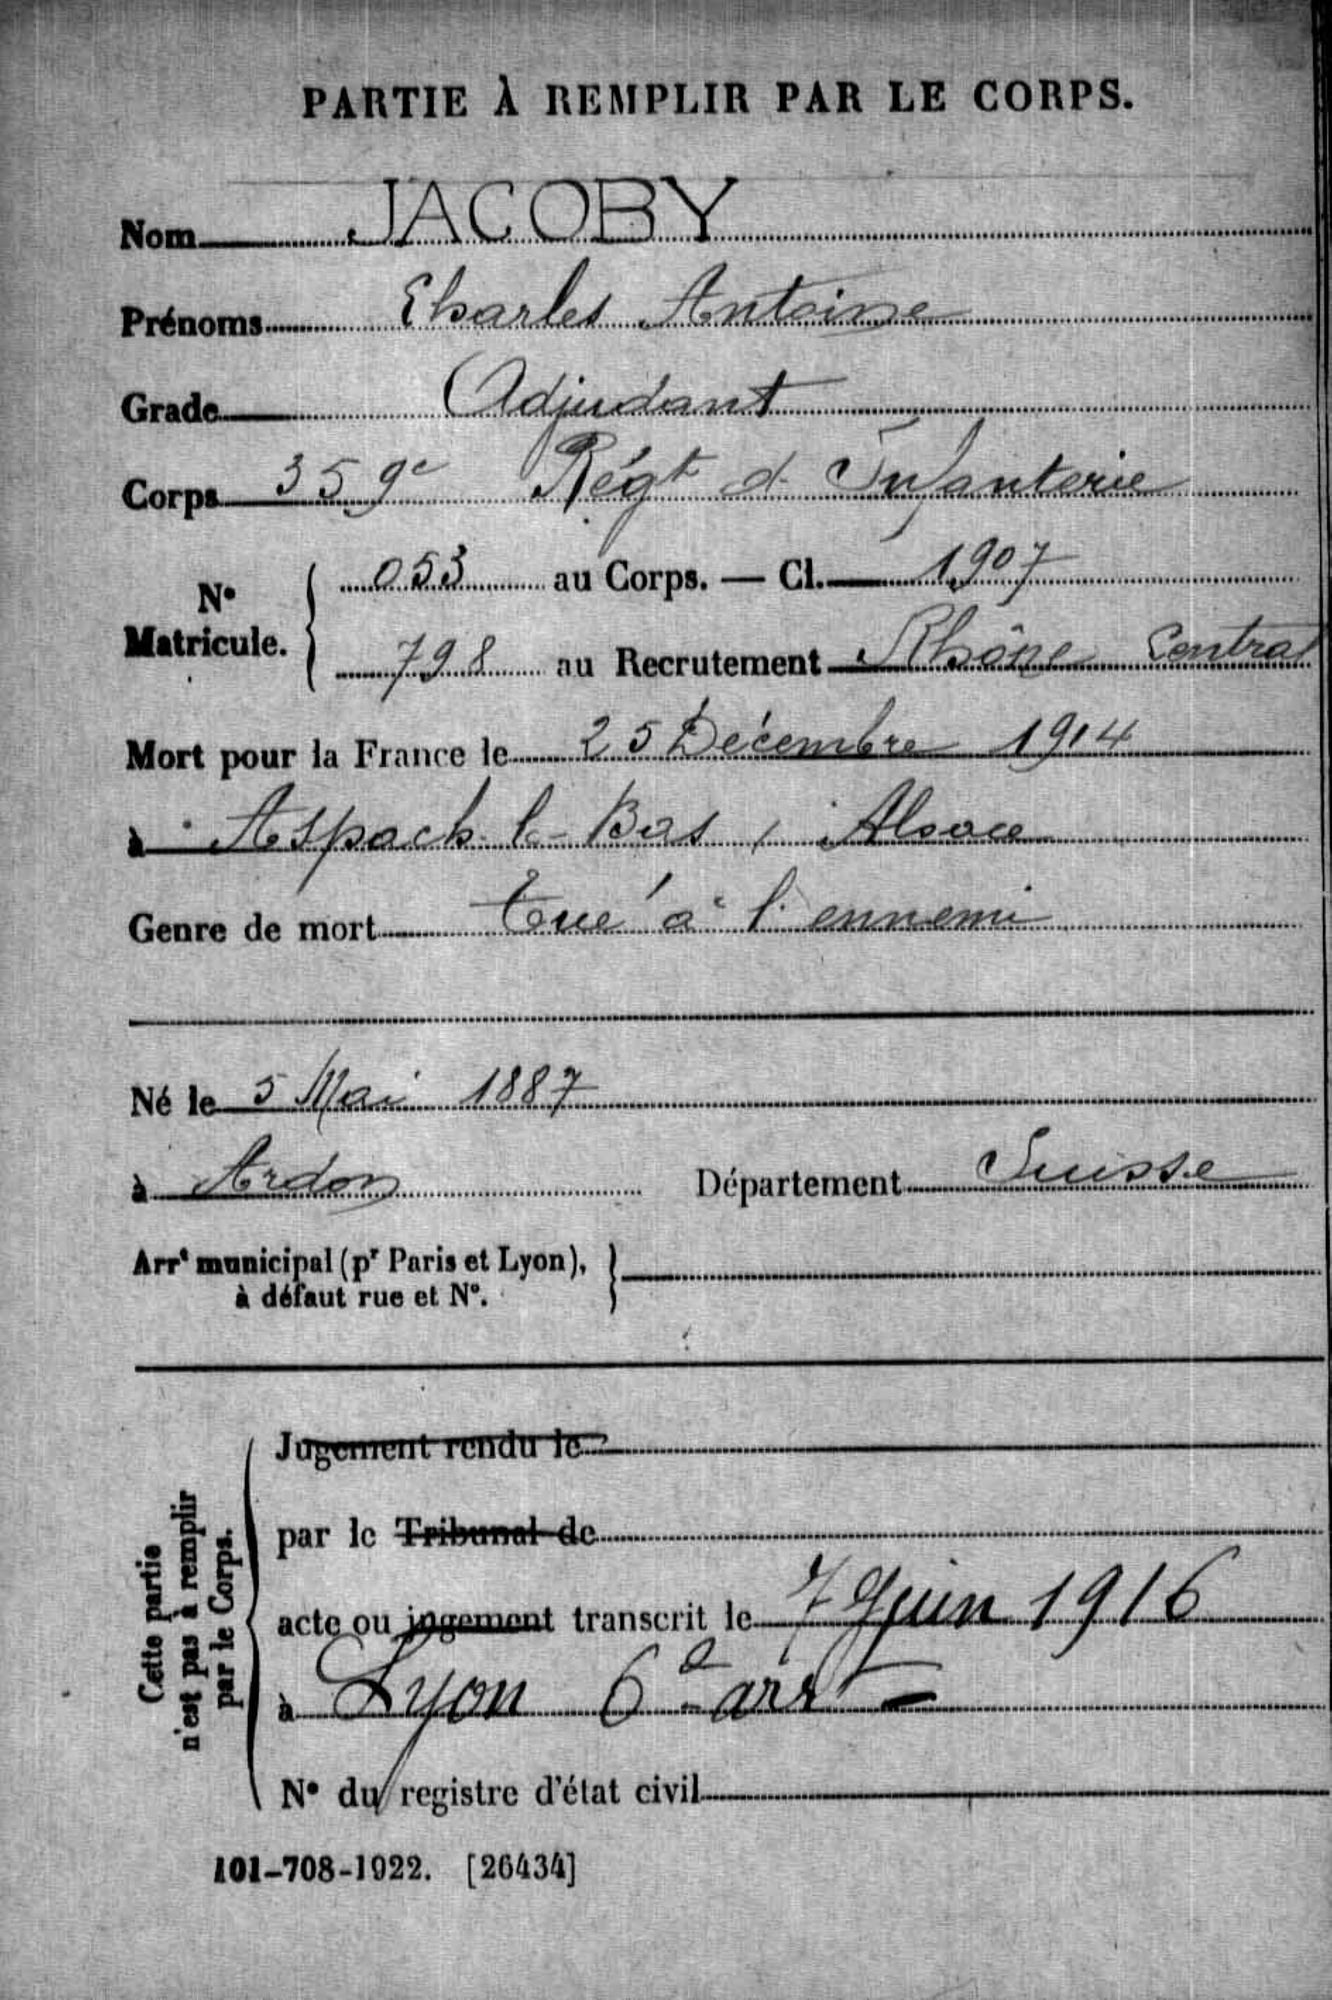 PARTIE À REMPLIR PAR LE CORPS.
Nom JACOBY
Prénoms Charles Antoine
Grade Adjudant
Corps 359e Régt d'Infanterie
N° Matricule. 053 au Corps. — Cl. 1907
798 au Recrutement Rhône Central
Mort pour la France le 25 Décembre 1914
à Aspach-le-Bas, Alsace
Genre de mort Tué à l'ennemi
Né le 5 Mai 1887
à Ardon Département Suisse
Arrt municipal (pr Paris et Lyon), à défaut rue et N°.
Cette partie n'est pas à remplir par le Corps.
Jugement rendu le
par le Tribunal de
acte ou jugement transcrit le 7 Juin 1916
à Lyon 6e arrt
N° du registre d'état civil
101-708-1922. [26434]